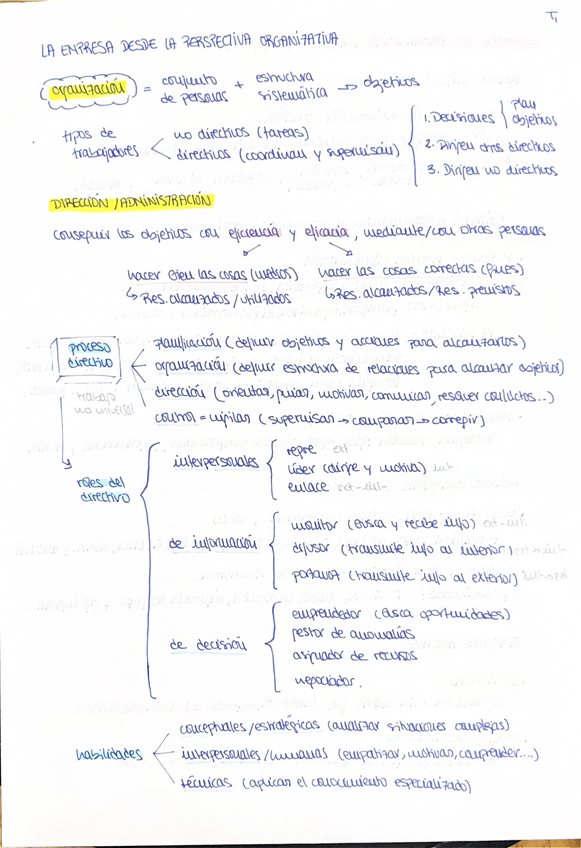 T1
LA EMPRESA DESDE LA PERSPECTIVA ORGANIZATIVA
organización = conjunto de personas + estructura sistemática → objetivos
tipos de trabajadores
no directivos (tareas)
directivos (coordinan y supervisan)
1. Decisiones
plan
objetivos
2. Dirigen otros directivos
3. Dirigen no directivos
DIRECCIÓN / ADMINISTRACIÓN
conseguir los objetivos con eficiencia y eficacia, mediante/con otras personas
hacer bien las cosas (medios)
↳ Res. alcanzados / utilizados
hacer las cosas correctas (fines)
↳ Res. alcanzados / Res. previstos
proceso directivo
planificación (definir objetivos y acciones para alcanzarlos)
organización (definir estructura de relaciones para alcanzar objetivos)
dirección (orientar, guiar, motivar, comunicar, resolver conflictos...)
control = vigilar (supervisan → comparan → corregir)
trabajo
no universal
roles del directivo
interpersonales
repre ext
líder (dirige y motiva) int
enlace ext-int
de información
monitor (busca y recibe info) ext-int
difusor (transmite info al interior) ext→int
portavoz (transmite info al exterior) int→ext
de decisión
emprendedor (busca oportunidades)
gestor de anomalías
asignador de recursos
negociador.
habilidades
conceptuales/estratégicas (analizar situaciones complejas)
interpersonales/humanas (empatizar, motivar, comprender....)
técnicas (aplican el conocimiento especializado)